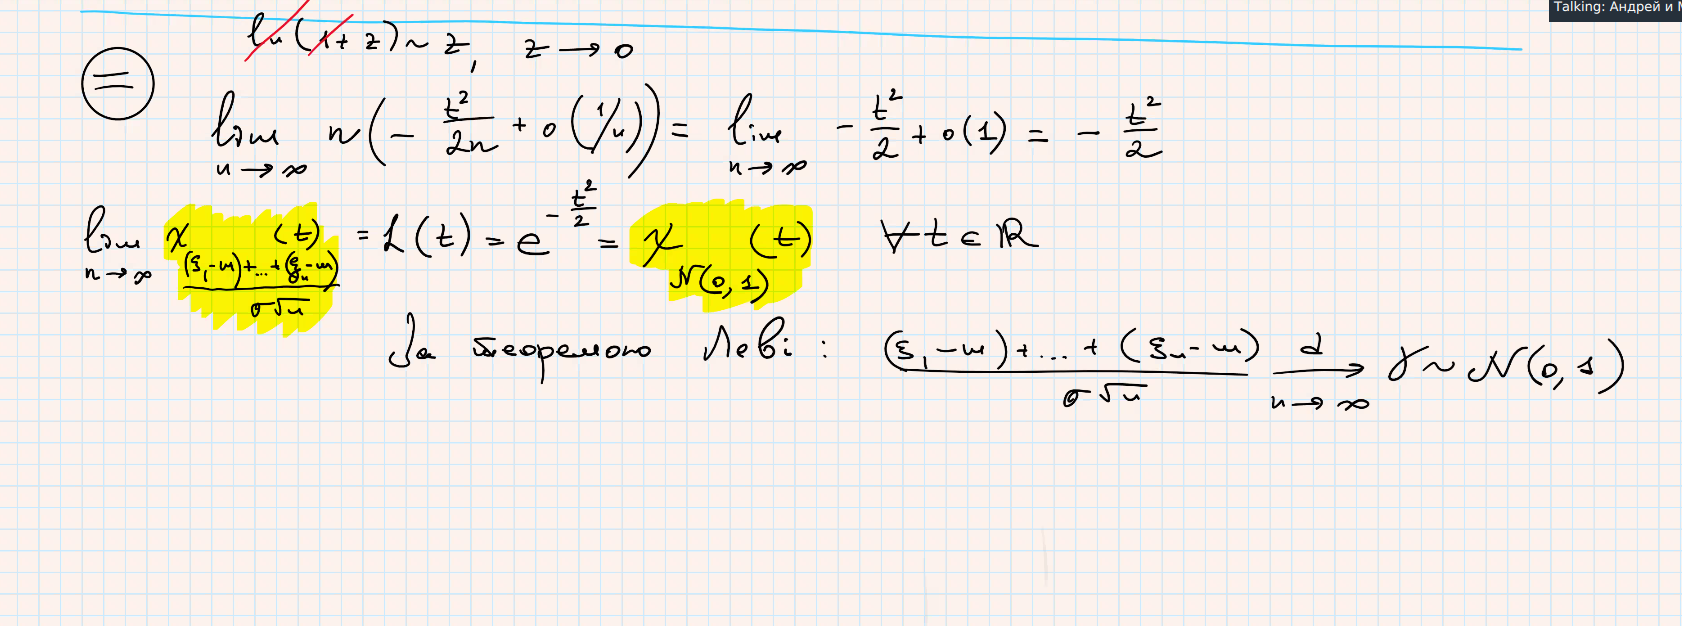 Talking: Андрей и М
ln(1+z) ~ z, z → 0
=
lim n→∞ n(− t²/2n + o(1/n)) = lim n→∞ − t²/2 + o(1) = − t²/2
lim n→∞ χ (ξ₁−m)+...+(ξₙ−m)/σ√n (t) = L(t) = e^(−t²/2) = χ N(0,1) (t) ∀ t ∈ ℝ
За теоремою Леві: (ξ₁−m)+...+(ξₙ−m)/σ√n →d n→∞ γ ~ N(0,1)